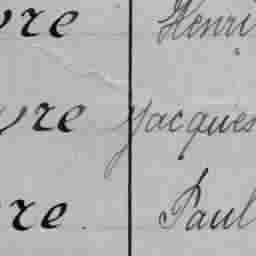 vre Henri
vre Jacques
vre. Paul